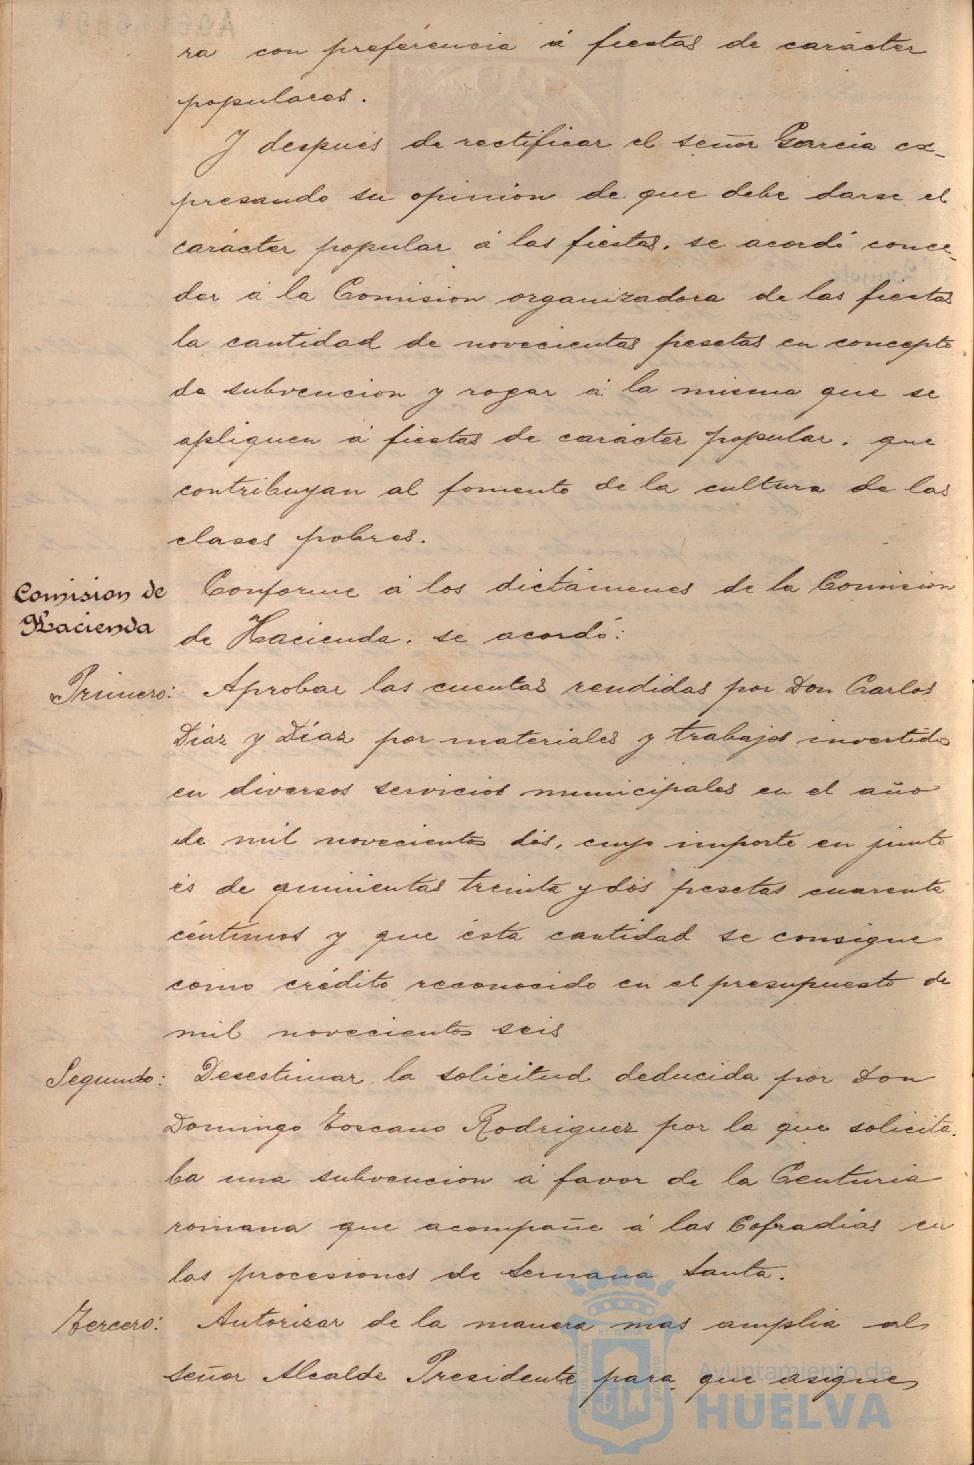 ra con preferencia á fiestas de carácter
populares.
Y después de rectificar el señor Garcia ex-
presando su opinion de que debe darse el
carácter popular á las fiestas, se acordó conce-
der á la Comision organizadora de las fiestas
la cantidad de novecientas pesetas en concepto
de subvencion y rogar á la misma que se
apliquen á fiestas de carácter popular, que
contribuyan al fomento de la cultura de las
clases pobres.
Comision de
Hacienda
Conforme á los dictámenes de la Comision
de Hacienda, se acordó:
Primero: Aprobar las cuentas rendidas por Don Carlos
Díaz y Díaz por materiales y trabajos invertidos
en diversos servicios municipales en el año
de mil novecientos dós, cuyo importe en junto
és de quinientas treinta y dós pesetas cuarenta
céntimos y que ésta cantidad se consigne
como crédito reconocido en el presupuesto de
mil novecientos seis
Segundo: Desestimar la solicitud deducida por Don
Domingo Toscano Rodriguez por la que solicita-
ba una subvencion á favor de la Centuria
romana que acompañe á las Cofradías en
las procesiones de Semana Santa.
Tercero: Autorizar de la manera mas amplia al
señor Alcalde Presidente para que asigne
Ayuntamiento de
HUELVA